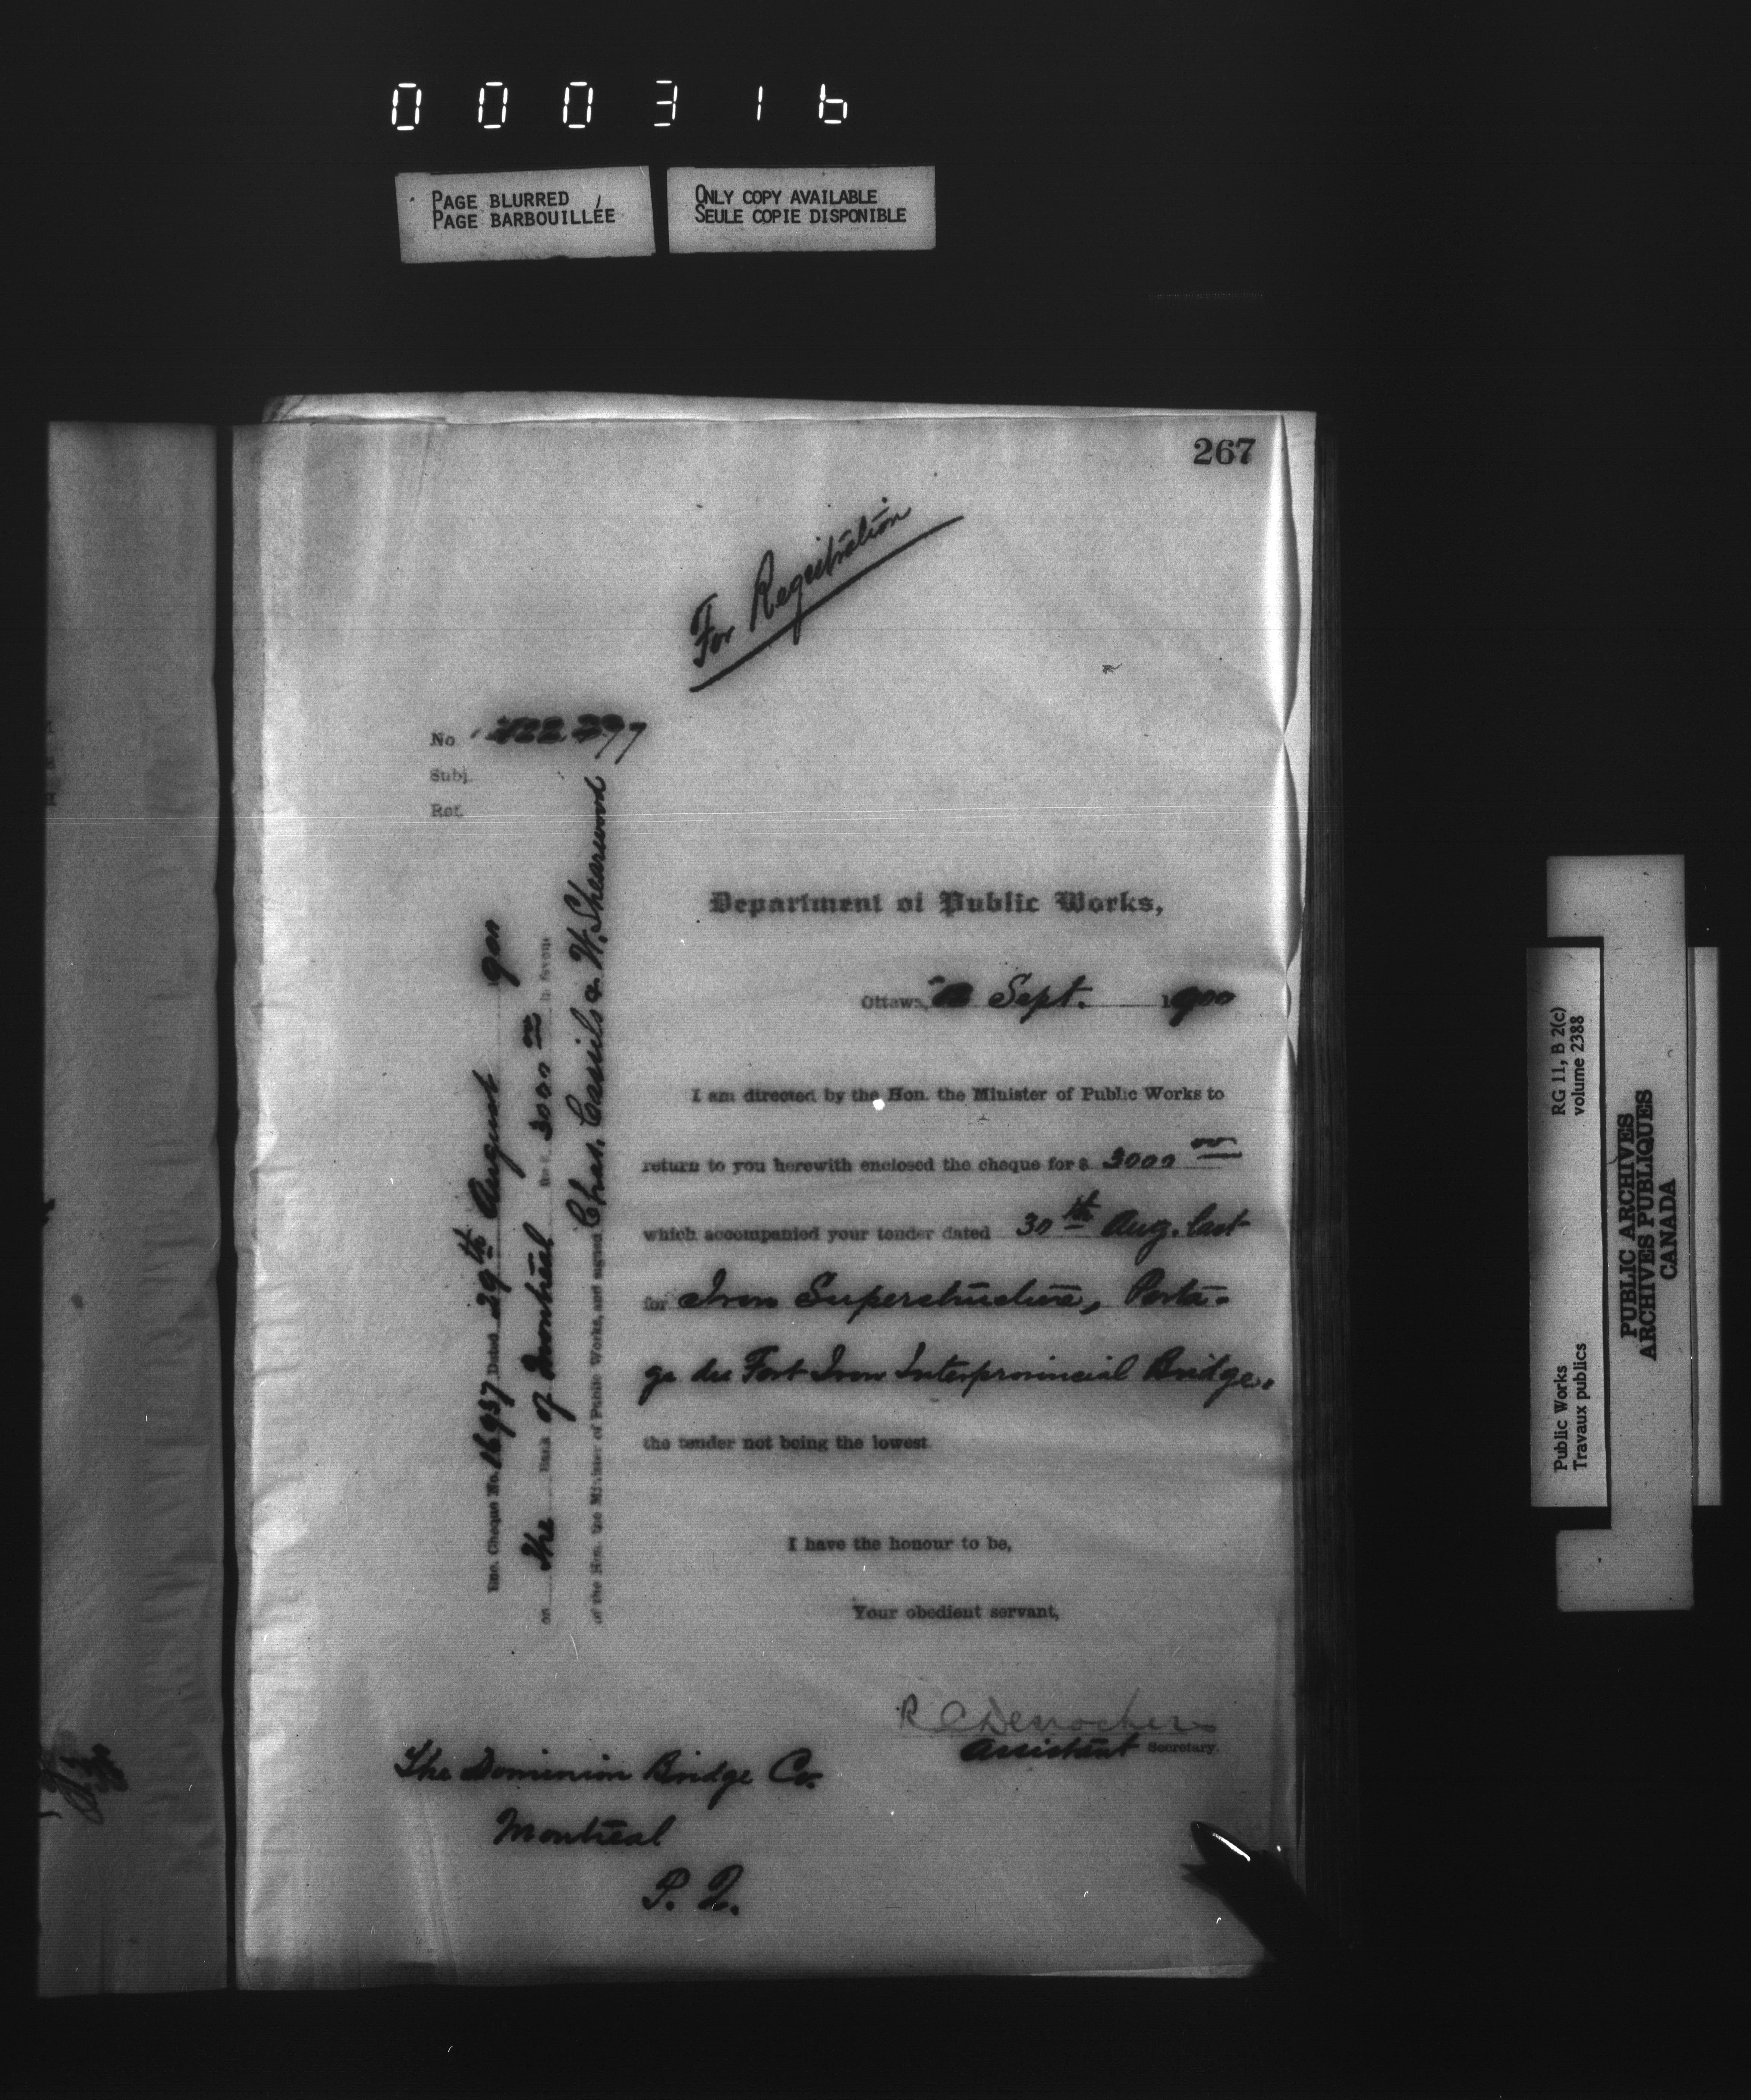 000316
PAGE BLURRED
PAGE BARBOUILLÉE
ONLY COPY AVAILABLE
SEULE COPIE DISPONIBLE
267
For Registration
No
Subj.
Ref.
Department of Public Works,
Ottawa, Sept. 1900
I am directed by the Hon. the Minister of Public Works to
return to you herewith enclosed the cheque for $ 3000 00
which accompanied your tender dated 30th Aug. last
for Iron Superstructure, Porta-
ge du Fort Iron Interprovincial Bridge.
the tender not being the lowest
I have the honour to be,
Your obedient servant,
R C Desrochers
Assistant Secretary.
The Dominion Bridge Co.
Montreal
P. Q.
Enc. Cheque No. 16937 Dated 29th August 1900
on the Bank of Montreal for $ 3000 00 in favour
of the Hon. the Minister of Public Works, and signed Chas. Cassils & W. Shearwood
Public Works
Travaux publics
RG 11, B 2(c)
volume 2388
PUBLIC ARCHIVES
ARCHIVES PUBLIQUES
CANADA